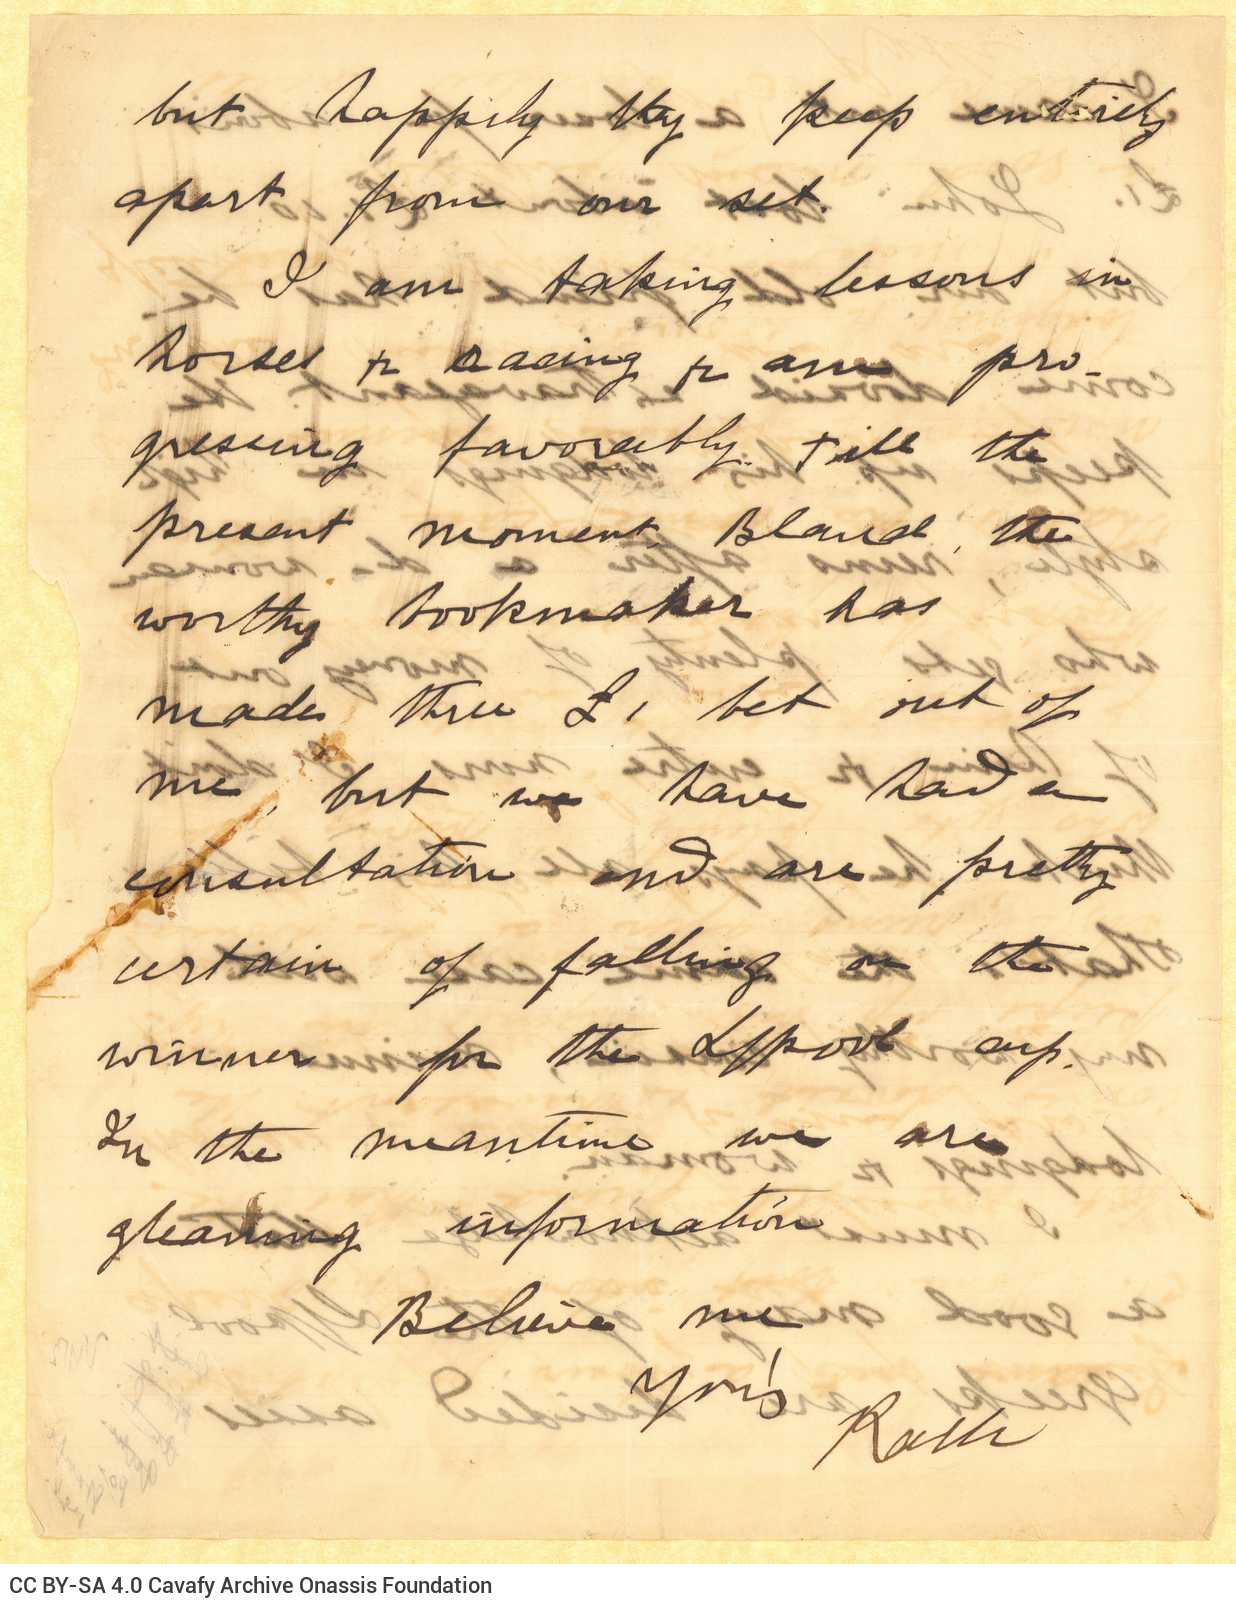 but happily they keep entirely
apart from our set.
I am taking lessons in
horses & racing & am pro-
gressing favorably. till the
present moment, Bland, the
worthy bookmaker has
made three £1 bet out of
me, but we have had a
consultation and are pretty
certain of falling on the
winner for the L'pool cup.
In the meantime we are
gleaning information
Believe me
Yor's
Ralli
CC BY-SA 4.0 Cavafy Archive Onassis Foundation